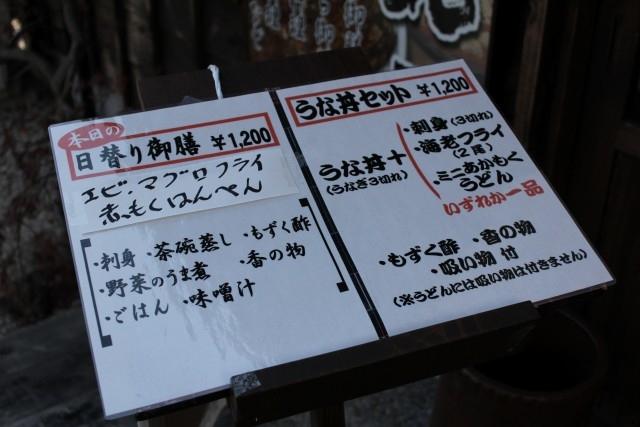 本日の
日替り御膳 ¥1,200
エビ・マグロフライ
赤もくはんぺん
・刺身 ・茶碗蒸し ・もずく酢
・野菜のうま煮 ・香の物
・ごはん ・味噌汁
うな丼セット ¥1,200
うな丼+
(うなぎ3切れ)
・刺身(3切れ)
・海老フライ
(2尾)
・ミニあかもく
うどん
いずれか一品
・もずく酢 ・香の物
・吸い物 付
(※うどんには吸い物は付きません)